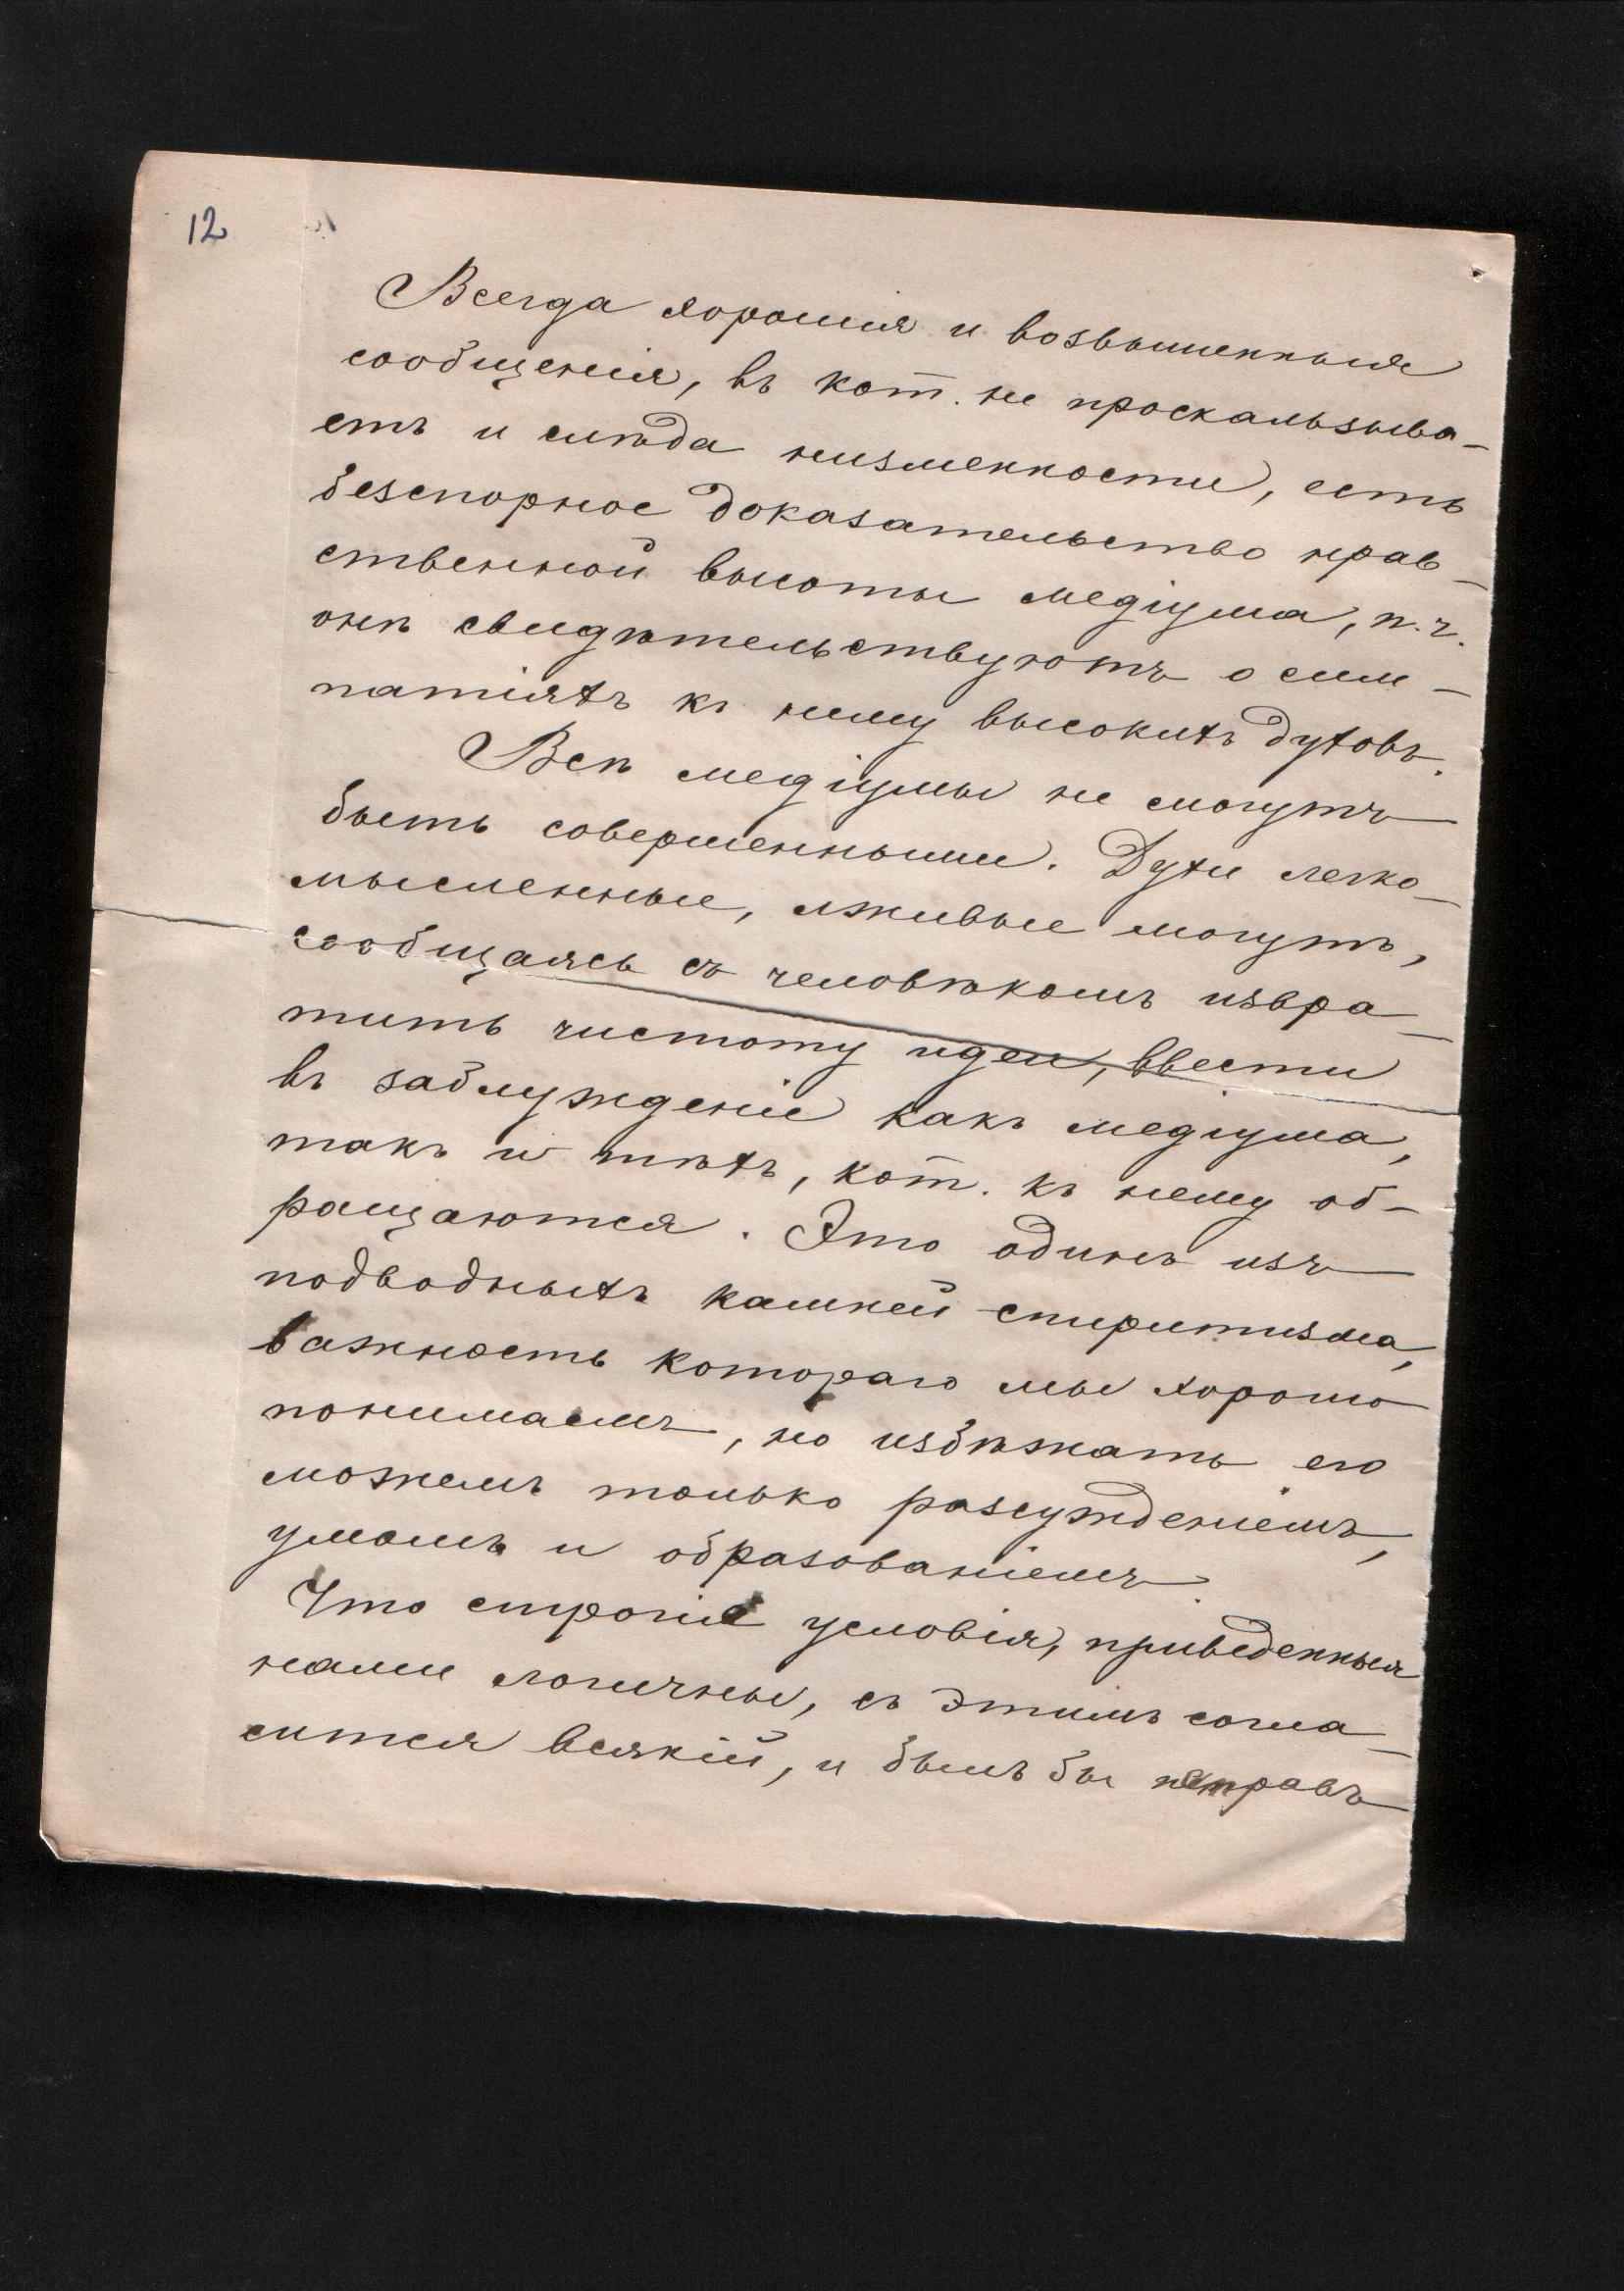 12
Всегда хорошія и возвышенныя
сообщенія, въ кот. не проскальзыва-
етъ и слѣда низменности, есть
безспорное доказательство нрав-
ственной высоты медіума, п. ч.
онѣ свидѣтельствуютъ о сим-
патіяхъ къ нему высокихъ духовъ.
Всѣ медіумы не могутъ
быть совершенными. Духи легко-
мысленные, лживые могутъ,
сообщаясь съ человѣкомъ извра-
тить чистоту идеи, ввести
въ заблужденіе какъ медіума,
такъ и тѣхъ, кот. къ нему об-
ращаются. Это одинъ изъ
подводныхъ камней спиритизма,
важность котораго мы хорошо
понимаемъ, но избѣжать его
можемъ только разсужденіемъ,
умомъ и образованіемъ
Что строгія условія, приведенныя
нами логичны, съ этимъ согла-
сится всякій, и былъ бы неправъ